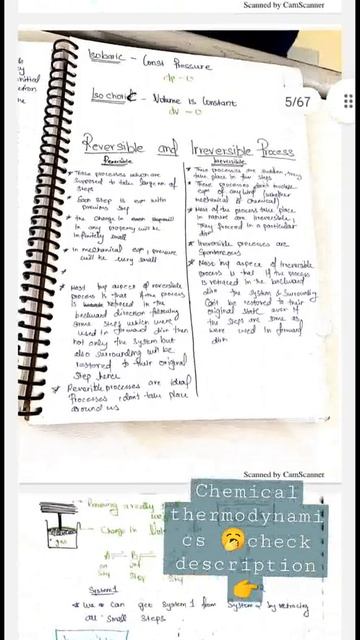 Scanned by CamScanner
Isobaric - Const Pressure
dp = 0
Isochoric - Volume is Constant
dv = 0
5/67
Reversible and Irreversible Process
Reversible
These processes which are
supposed to take large no of
steps
Each step is eqm with
previous step
the change in
in any property will be
infinitely small
In mechanical eqm, pressure
will be very small
Most imp aspect of reversible
process is that if the process
is retraced in the
backward direction following
same steps which were
used in forward dirn then
not only the system but
also surrounding will be
restored to their original
step hence
Reversible processes are ideal
Processes & don't take place
around us
Irreversible
These processes are sudden, they
take place in few steps
These processes don't involve
eqm of any kind (whether
mechanical & chemical)
Most of the process take place
in nature are irreversible,
They proceed in a particular
dirn
Irreversible processes are
Spontaneous
Most imp aspect of irreversible
process is that if the process
is retraced in the backward
dirn the system & surrounding
can't be restored to their
original state even if
the steps are same as
were used in forward
dirn
Scanned by CamScanner
Removing
Change in
gas
A ⇌ B
System 1
We can get System 1 from System by retracing
all small steps
Chemical
thermodynami
cs 🤫check
description
👉